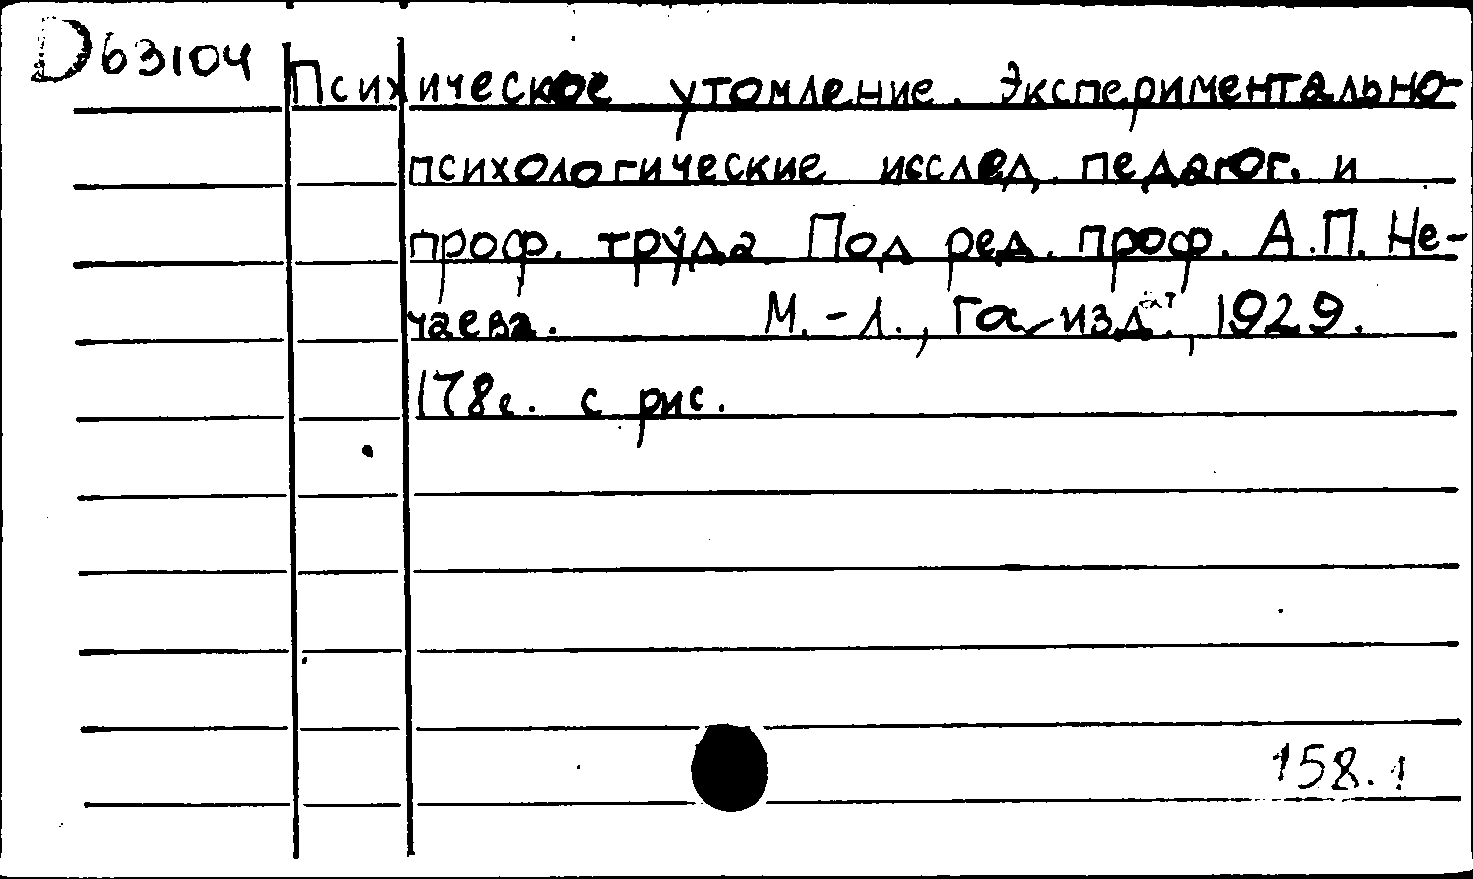 D63104
Психическое утомление. Экспериментально-
психологические исслед. педагог. и
проф. труда. Под ред. проф. А.П. Не-
чаева. М.-Л., 1929.
178с. с рис.
158.1